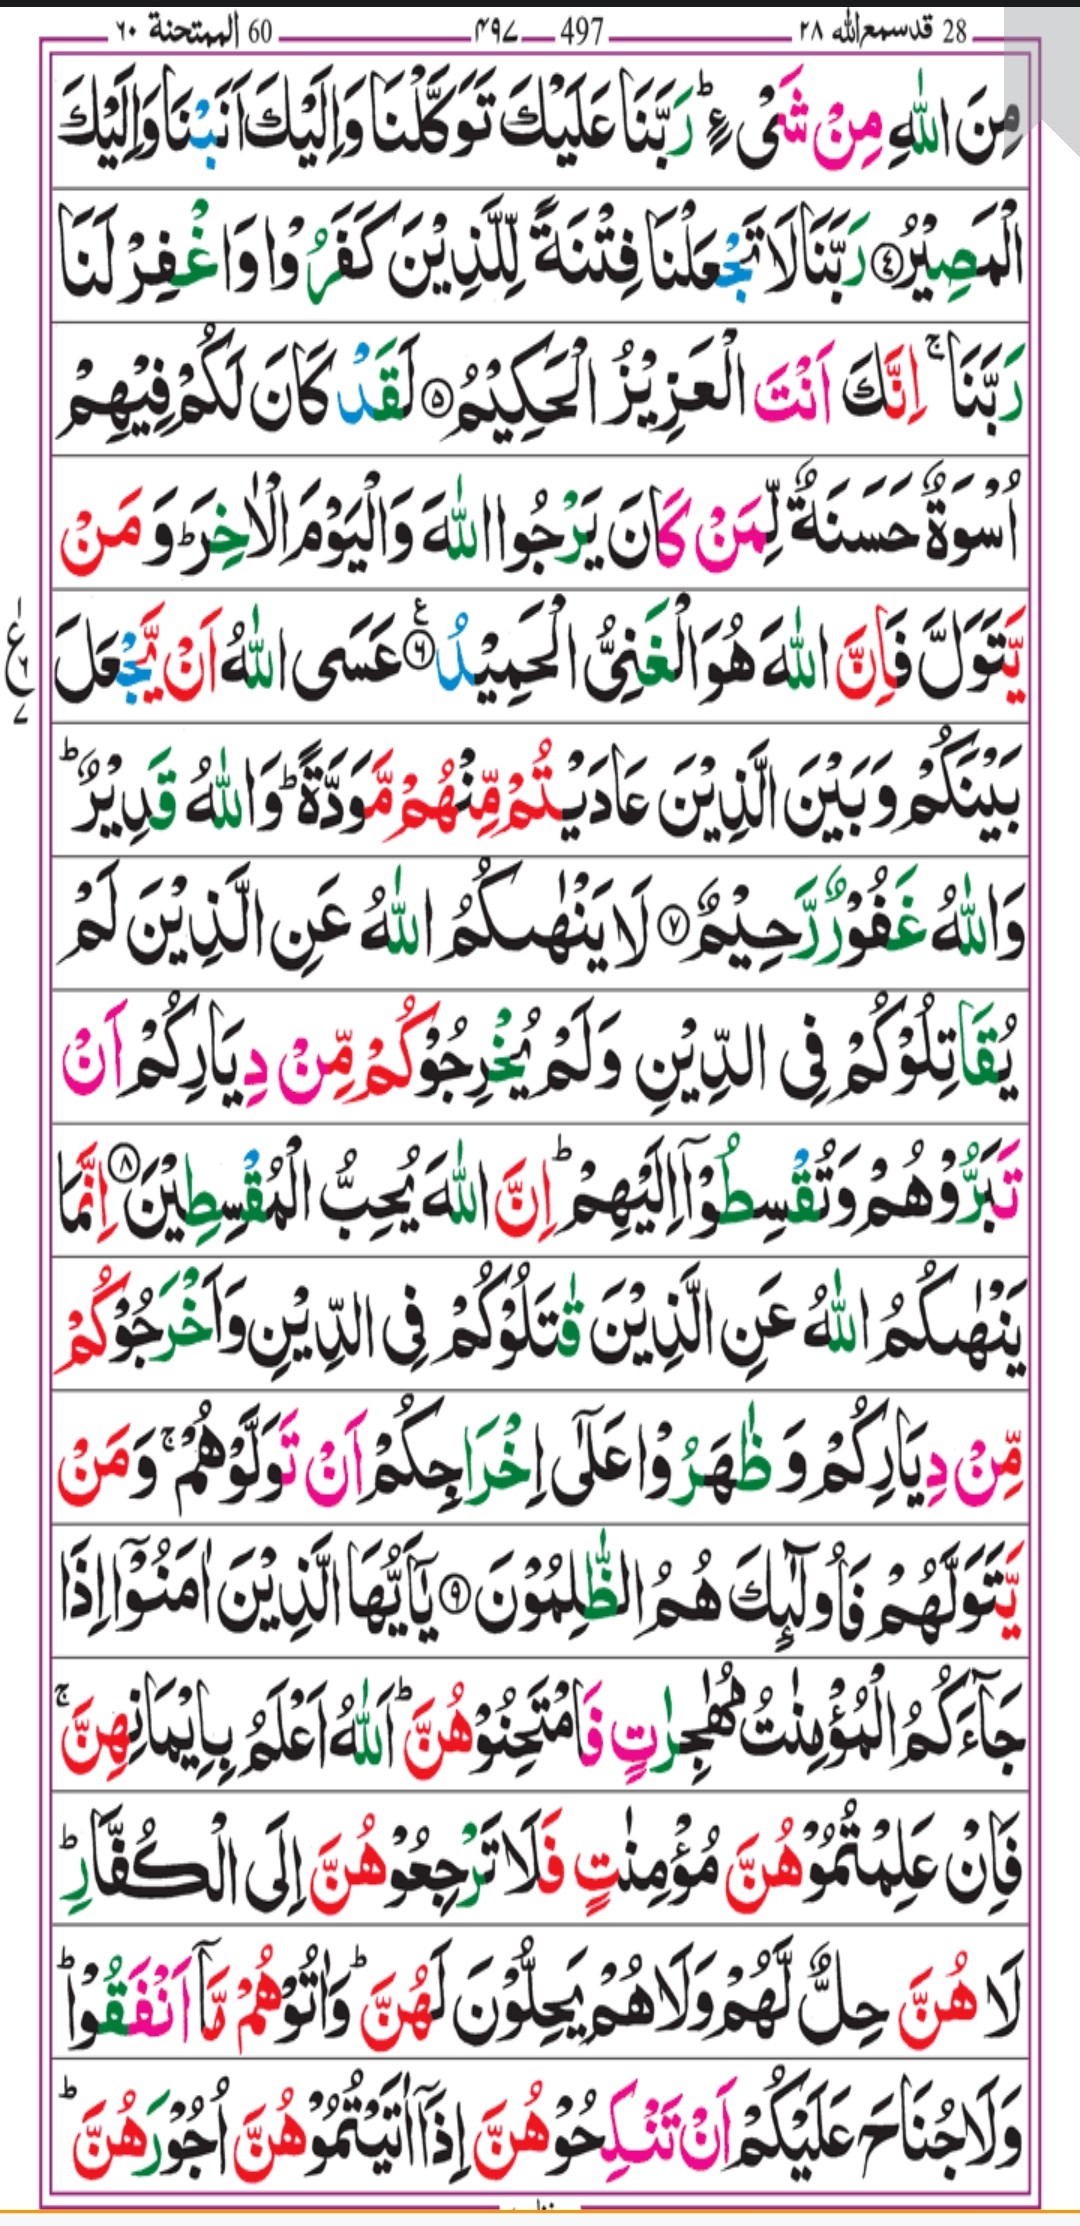 28 قدسمع الله ٢٨ — 497 — ۴۹۷ — 60 الممتحنة ٦٠
مِنَ اللّٰهِ مِنْ شَىْءٍ ؕ رَبَّنَا عَلَيْكَ تَوَكَّلْنَا وَاِلَيْكَ اَنَبْنَا وَاِلَيْكَ
الْمَصِيْرُ ④ رَبَّنَا لَا تَجْعَلْنَا فِتْنَةً لِّلَّذِيْنَ كَفَرُوْا وَاغْفِرْ لَنَا
رَبَّنَا ۚ اِنَّكَ اَنْتَ الْعَزِيْزُ الْحَكِيْمُ ⑤ لَقَدْ كَانَ لَكُمْ فِيْهِمْ
اُسْوَةٌ حَسَنَةٌ لِّمَنْ كَانَ يَرْجُوا اللّٰهَ وَالْيَوْمَ الْاٰخِرَ ؕ وَمَنْ
يَّتَوَلَّ فَاِنَّ اللّٰهَ هُوَ الْغَنِىُّ الْحَمِيْدُ ⑥ ع عَسَى اللّٰهُ اَنْ يَّجْعَلَ
ع ٦ ٧
بَيْنَكُمْ وَبَيْنَ الَّذِيْنَ عَادَيْتُمْ مِّنْهُمْ مَّوَدَّةً ؕ وَاللّٰهُ قَدِيْرٌ ؕ
وَاللّٰهُ غَفُوْرٌ رَّحِيْمٌ ⑦ لَا يَنْهٰىكُمُ اللّٰهُ عَنِ الَّذِيْنَ لَمْ
يُقَاتِلُوْكُمْ فِى الدِّيْنِ وَلَمْ يُخْرِجُوْكُمْ مِّنْ دِيَارِكُمْ اَنْ
تَبَرُّوْهُمْ وَتُقْسِطُوْۤا اِلَيْهِمْ ؕ اِنَّ اللّٰهَ يُحِبُّ الْمُقْسِطِيْنَ ⑧ اِنَّمَا
يَنْهٰىكُمُ اللّٰهُ عَنِ الَّذِيْنَ قٰتَلُوْكُمْ فِى الدِّيْنِ وَاَخْرَجُوْكُمْ
مِّنْ دِيَارِكُمْ وَظٰهَرُوْا عَلٰٓى اِخْرَاجِكُمْ اَنْ تَوَلَّوْهُمْ ۚ وَمَنْ
يَّتَوَلَّهُمْ فَاُولٰٓئِكَ هُمُ الظّٰلِمُوْنَ ⑨ يٰۤاَيُّهَا الَّذِيْنَ اٰمَنُوْۤا اِذَا
جَآءَكُمُ الْمُؤْمِنٰتُ مُهٰجِرٰتٍ فَامْتَحِنُوْهُنَّ ؕ اَللّٰهُ اَعْلَمُ بِاِيْمَانِهِنَّ ۚ
فَاِنْ عَلِمْتُمُوْهُنَّ مُؤْمِنٰتٍ فَلَا تَرْجِعُوْهُنَّ اِلَى الْكُفَّارِ ؕ
لَا هُنَّ حِلٌّ لَّهُمْ وَلَا هُمْ يَحِلُّوْنَ لَهُنَّ ؕ وَاٰتُوْهُمْ مَّاۤ اَنْفَقُوْا ؕ
وَلَا جُنَاحَ عَلَيْكُمْ اَنْ تَنْكِحُوْهُنَّ اِذَاۤ اٰتَيْتُمُوْهُنَّ اُجُوْرَهُنَّ ؕ